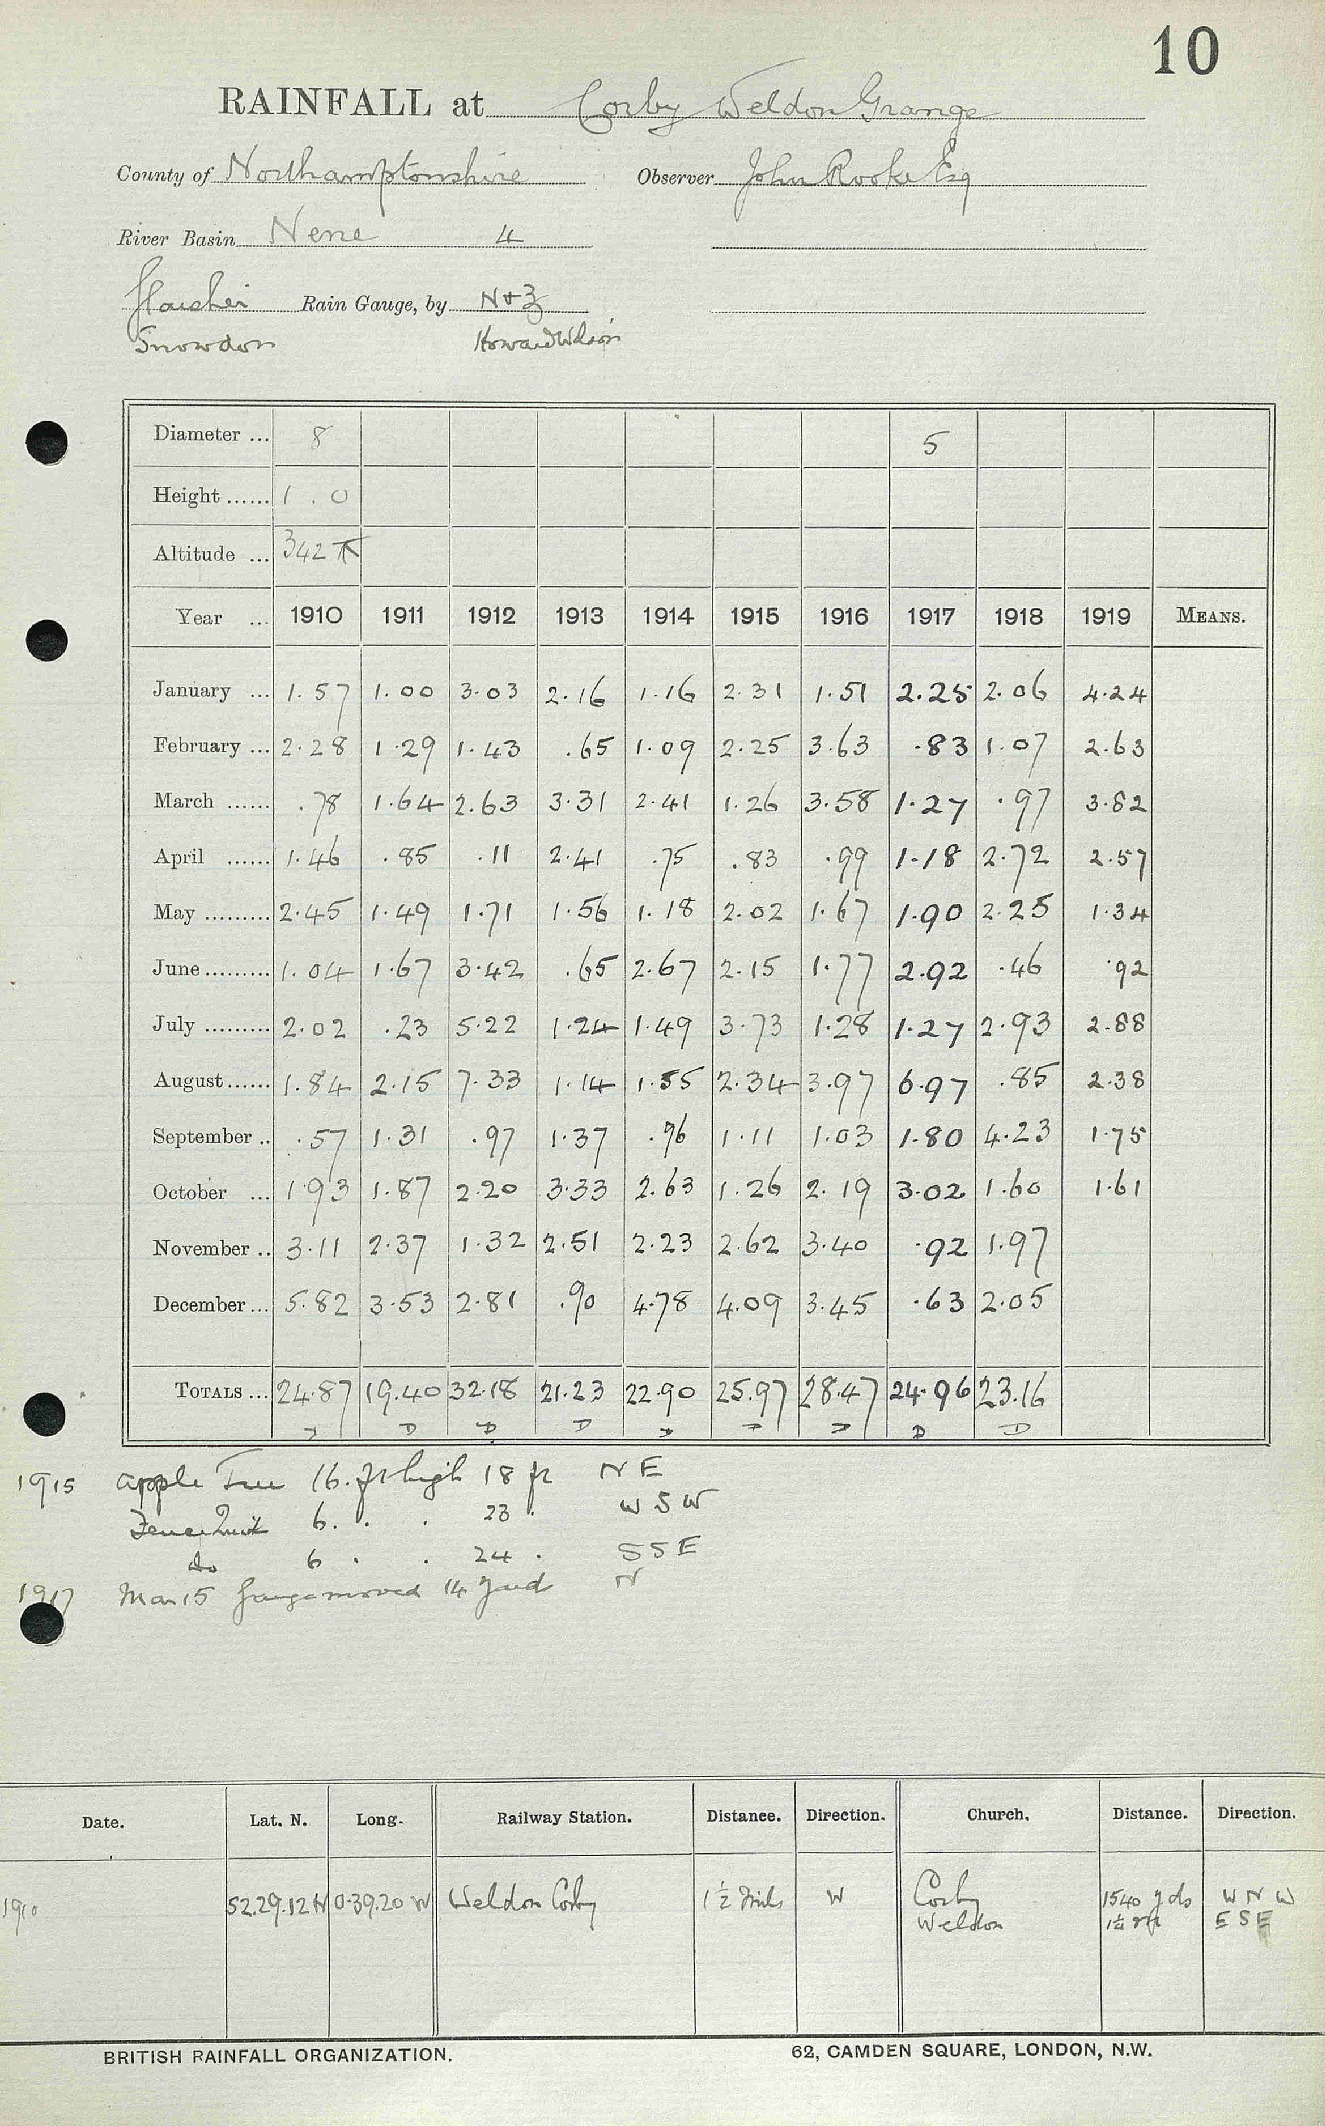 10
RAINFALL at Corby Weldon Grange
County of Northamptonshire Observer John Rooke Esq
River Basin Nene 4
Glaisher Rain Gauge, by N & Z
Snowdon Howard Wilson
Diameter ... 8 5
Height ...... 1.0
Altitude ... 342
Year ... 1910 1911 1912 1913 1914 1915 1916 1917 1918 1919 MEANS.
January ... 1.57 1.00 3.03 2.16 1.16 2.31 1.51 2.25 2.06 4.24
February ... 2.28 1.29 1.43 .65 1.09 2.25 3.63 .83 1.07 2.63
March ...... .78 1.64 2.63 3.31 2.41 1.26 3.58 1.27 .97 3.82
April ...... 1.46 .85 .11 2.41 .75 .83 .99 1.18 2.72 2.57
May ......... 2.45 1.49 1.71 1.56 1.18 2.02 1.67 1.90 2.25 1.34
June ......... 1.04 1.67 3.42 .65 2.67 2.15 1.77 2.92 .46 .92
July ......... 2.02 .23 5.22 1.24 1.49 3.73 1.28 1.27 2.93 2.88
August ...... 1.84 2.15 7.33 1.14 1.55 2.34 3.97 6.97 .85 2.38
September .. .57 1.31 .97 1.37 .96 1.11 1.03 1.80 4.23 1.75
October ... 1.93 1.87 2.20 3.33 2.63 1.26 2.19 3.02 1.60 1.61
November .. 3.11 2.37 1.32 2.51 2.23 2.62 3.40 .92 1.97
December ... 5.82 3.53 2.81 .90 4.78 4.09 3.45 .63 2.05
TOTALS ... 24.87 19.40 32.18 21.23 22.90 25.97 28.47 24.96 23.16
D D D D D D D D D
1915 apple Tree 16. ft high 18 ft NE
Fence Quick 6. . . 23 . WSW
do 6 . . 24 . SSE
1917 Mar 15 gauge moved 14 yard N
Date. Lat. N. Long. Railway Station. Distance. Direction. Church. Distance. Direction.
1910 52.29.12 N 0.39.20 W Weldon Corby 1½ Mils W Corby 1540 yds WNW
Weldon ESE
BRITISH RAINFALL ORGANIZATION. 62, CAMDEN SQUARE, LONDON, N.W.